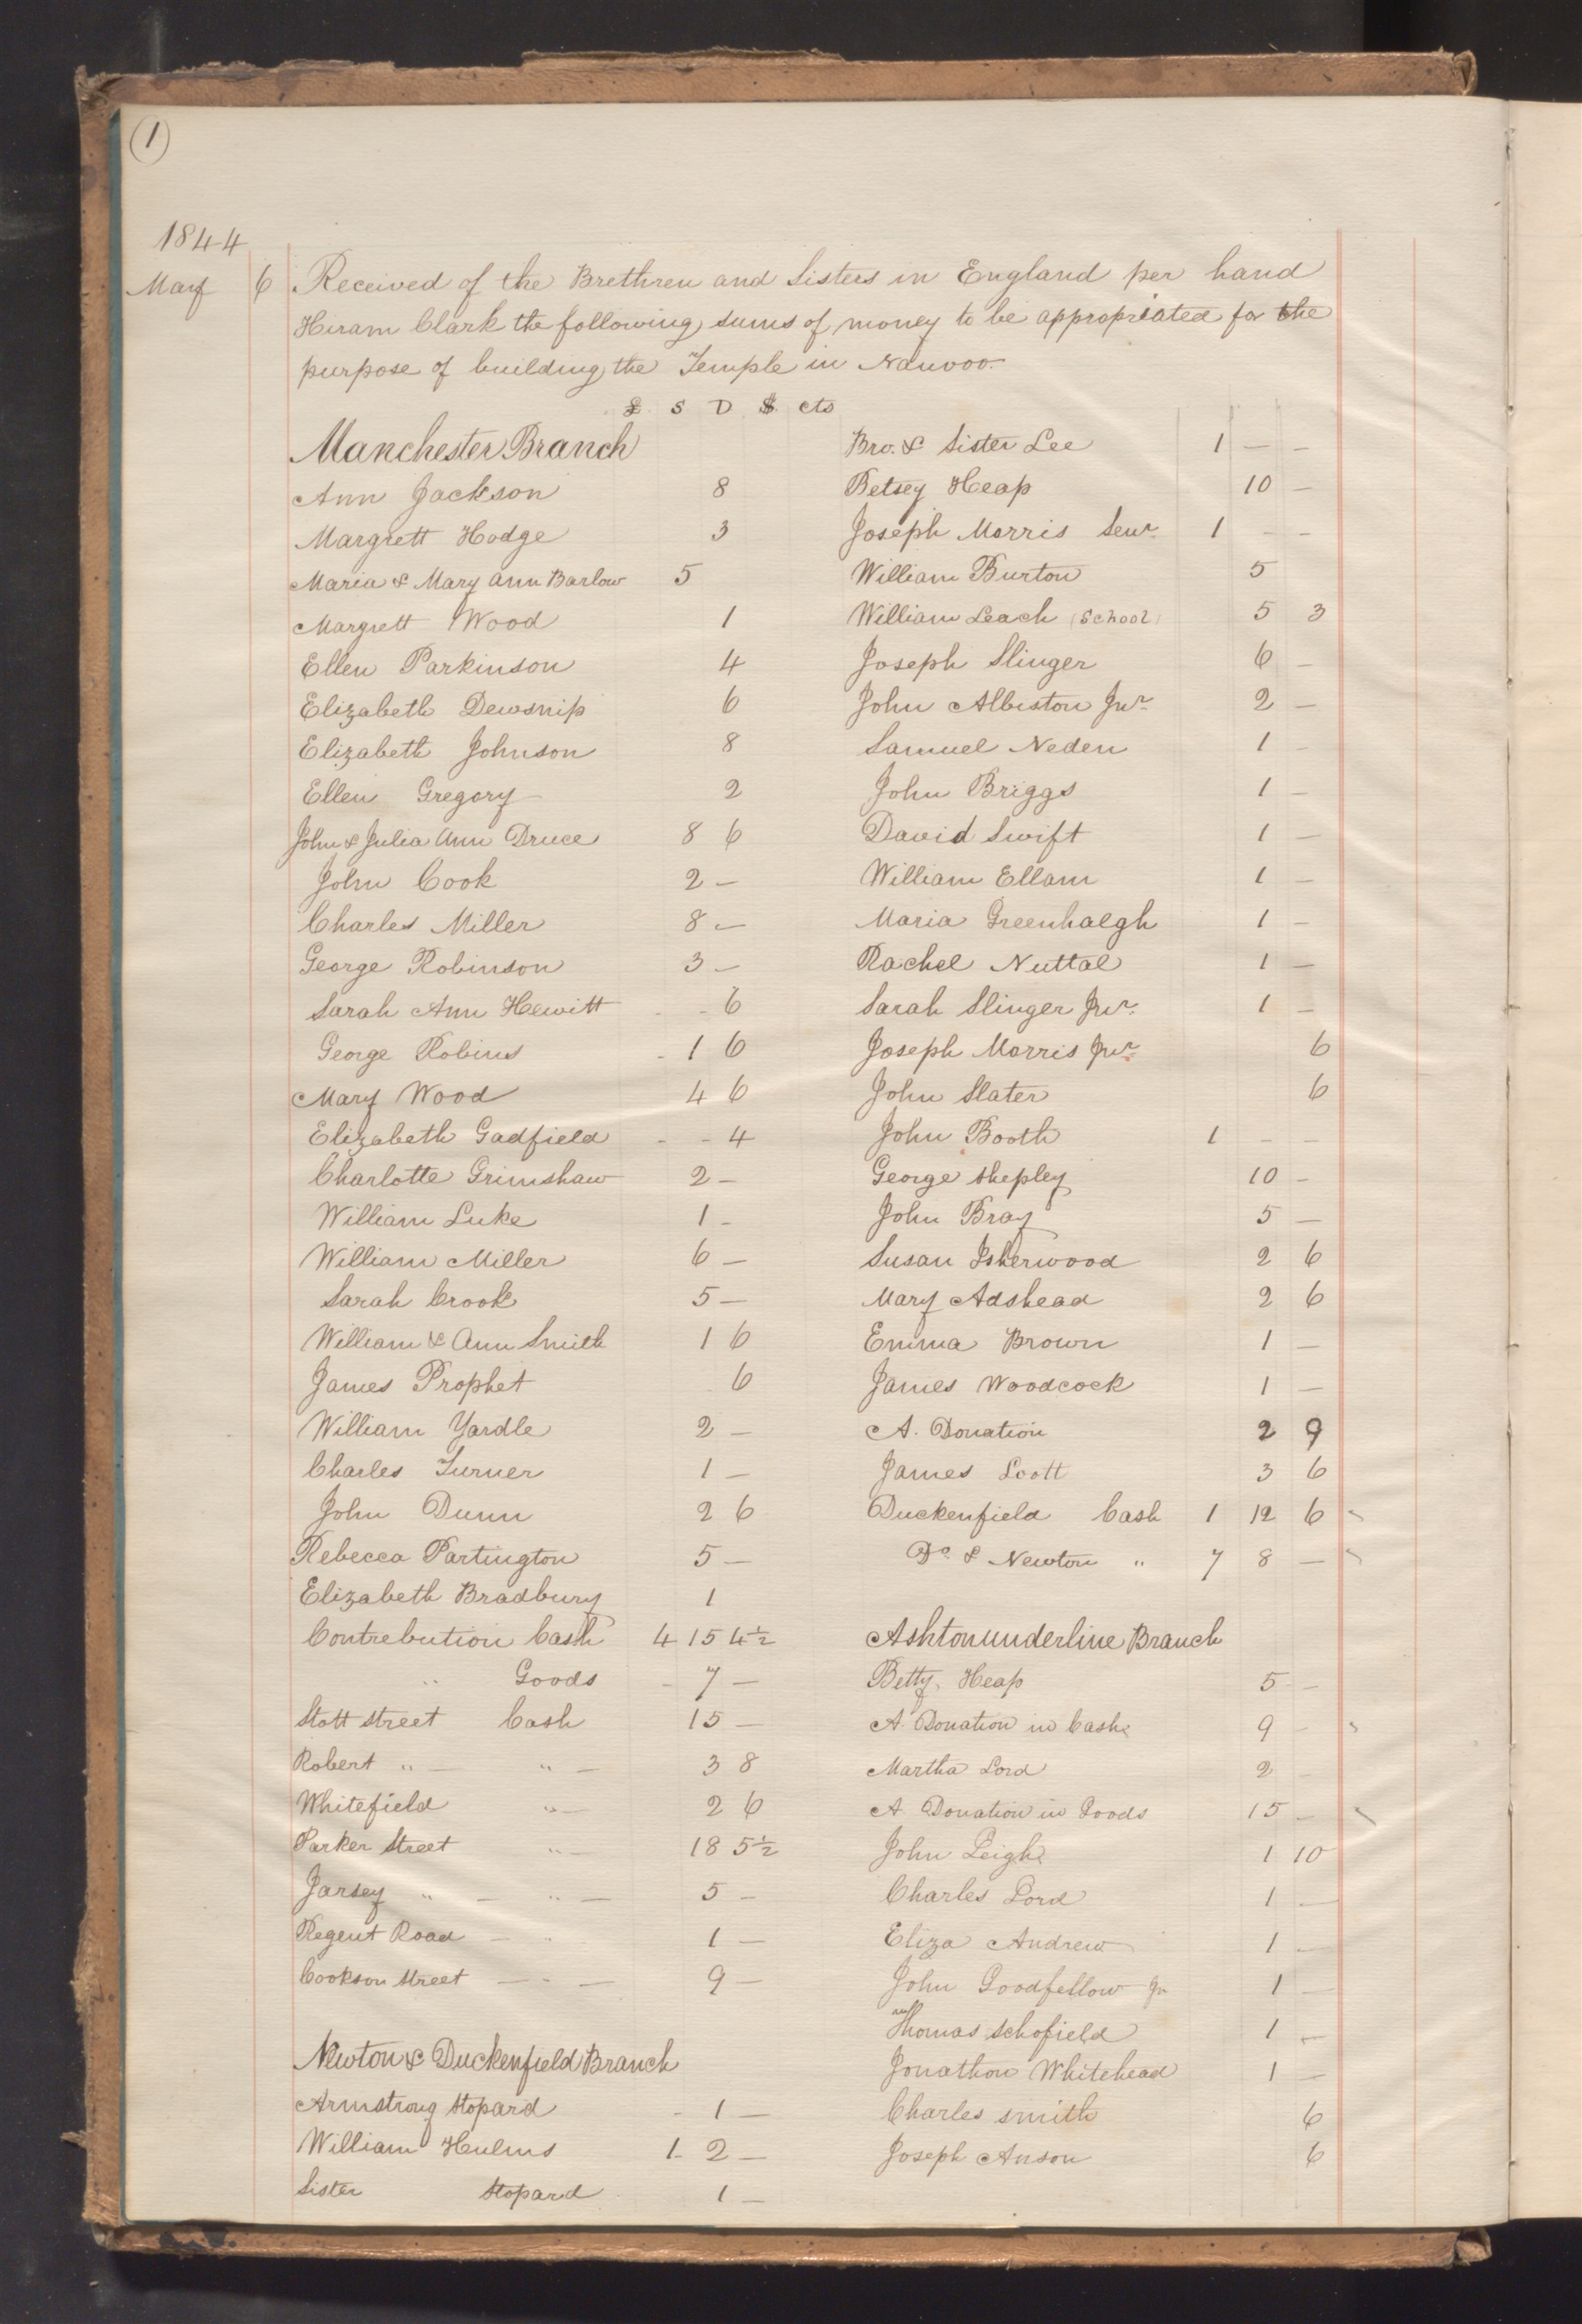 (1)
1844
May 6 Received of the Brethren and Sisters in England per hand
Hiram Clark the following sums of money to be appropriated for the
purpose of building the Temple in Nauvoo.
£ S D $ cts
Manchester Branch
Ann Jackson 8
Margrett Hodge 3
Maria & Mary Ann Barlow 5
Margrett Wood 1
Ellen Parkinson 4
Elizabeth Dewsnip 6
Elizabeth Johnson 8
Ellen Gregory 2
John & Julia Ann Druce 8 6
John Cook 2 —
Charles Miller 8 —
George Robinson 3 —
Sarah Ann Hewitt - - 6
George Robins - 1 6
Mary Wood 4 6
Elizabeth Gadfield - - 4
Charlotte Grimshaw 2 —
William Luke 1 -
William Miller 6 —
Sarah Crook 5 —
William & Ann Smith 1 6
James Prophet 6
William Yardle 2 —
Charles Turner 1 —
John Dunn 2 6
Rebecca Partington 5 —
Elizabeth Bradbury 1
Contrebution Cash 4 15 4½
" Goods - 7 —
Stott street Cash 15 —
Robert " — " — 3 8
Whitefield " — 2 6
Parker Street " — 18 5½
Jarsey " — " — 5 -
Regent Road — " 1 —
Cookson Street — - — 9 —
Newton & Duckenfield Branch
Armstrong Stopard - 1 —
William Hulms 1 - 2 —
Sister Stopard 1 —
Bro. & Sister Lee 1 — —
Betsey Heap 10 —
Joseph Morris Senr. 1 - -
William Burton 5
William Leach (School) 5 3
Joseph Slinger 6 —
John Albiston Jnr. 2 —
Samuel Neden 1 -
John Briggs 1 —
David Swift 1 —
William Ellam 1 —
Maria Greenhalgh 1 —
Rachel Nuttal 1 —
Sarah Slinger Jnr. 1 —
Joseph Morris Jnr. 6
John Slater 6
John Booth 1 - -
George Shepley 10 -
John Bray 5 —
Susan Isherwood 2 6
Mary Adshead 2 6
Emma Brown 1 —
James Woodcock 1 —
A. Donation 2 9
James Scott 3 6
Duckenfield Cash 1 12 6
Do. & Newton " 7 8 —
Ashtonunderline Branch
Betty Heap 5 -
A. Donation in Cash 9 -
Martha Lord 2 -
A. Donation in Goods 15 —
John Leigh 1 10
Charles Lord 1 —
Eliza Andrew 1 —
John Goodfellow Jn 1 —
Thomas Schofield 1 —
Jonathon Whitehead 1 —
Charles smith 6
Joseph Anson 6